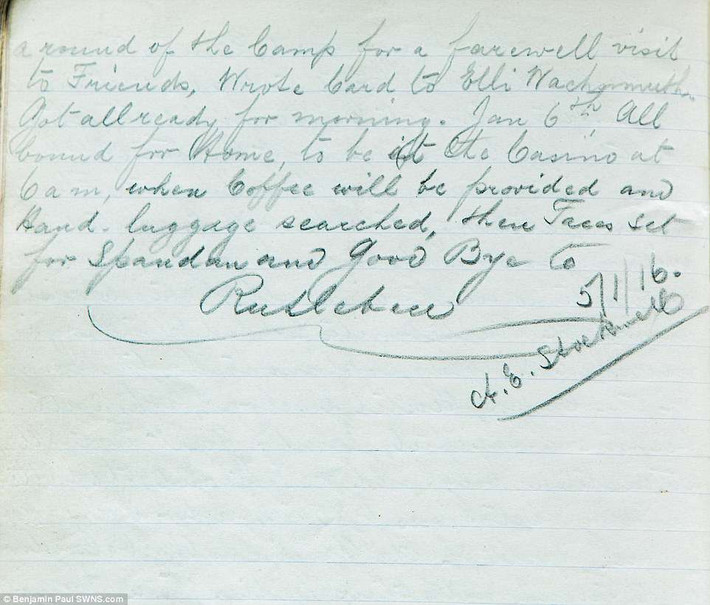 a round of the Camp for a farewell visit
to Friends, Wrote Card to Elli Wachsmuth.
Got all ready for morning. Jan 6th. All
bound for Home, to be at the Casino at
6 am, when Coffee will be provided and
Hand-luggage searched, then Faces set
for Spandau and Good Bye to
Ruhleben
5/1/16.
A. E. Stockwell
© Benjamin Paul SWNS.com